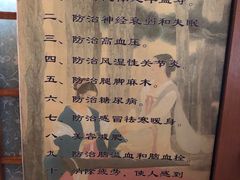 二、防治神经衰弱和失眠
三、防治高血压。
四、防治风湿性关节炎
五、防治腿脚麻木。
六、防治糖尿病。
七、防治感冒祛寒暖身。
八、美容减肥
九、防治脑溢血和脑血栓
十、消除疲劳，使人感到